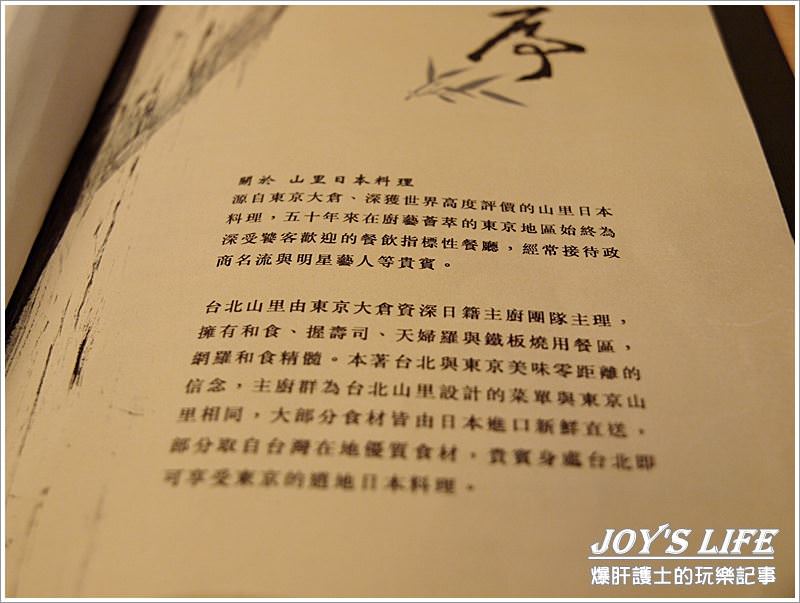 序
關於 山里日本料理
源自東京大倉、深獲世界高度評價的山里日本
料理，五十年來在廚藝薈萃的東京地區始終為
深受饕客歡迎的餐飲指標性餐廳，經常接待政
商名流與明星藝人等貴賓。
台北山里由東京大倉資深日籍主廚團隊主理，
擁有和食、握壽司、天婦羅與鐵板燒用餐區，
網羅和食精髓。本著台北與東京美味零距離的
信念，主廚群為台北山里設計的菜單與東京山
里相同，大部分食材皆由日本進口新鮮直送，
部分取自台灣在地優質食材，貴賓身處台北即
可享受東京的道地日本料理。
JOY'S LIFE
爆肝護士的玩樂記事